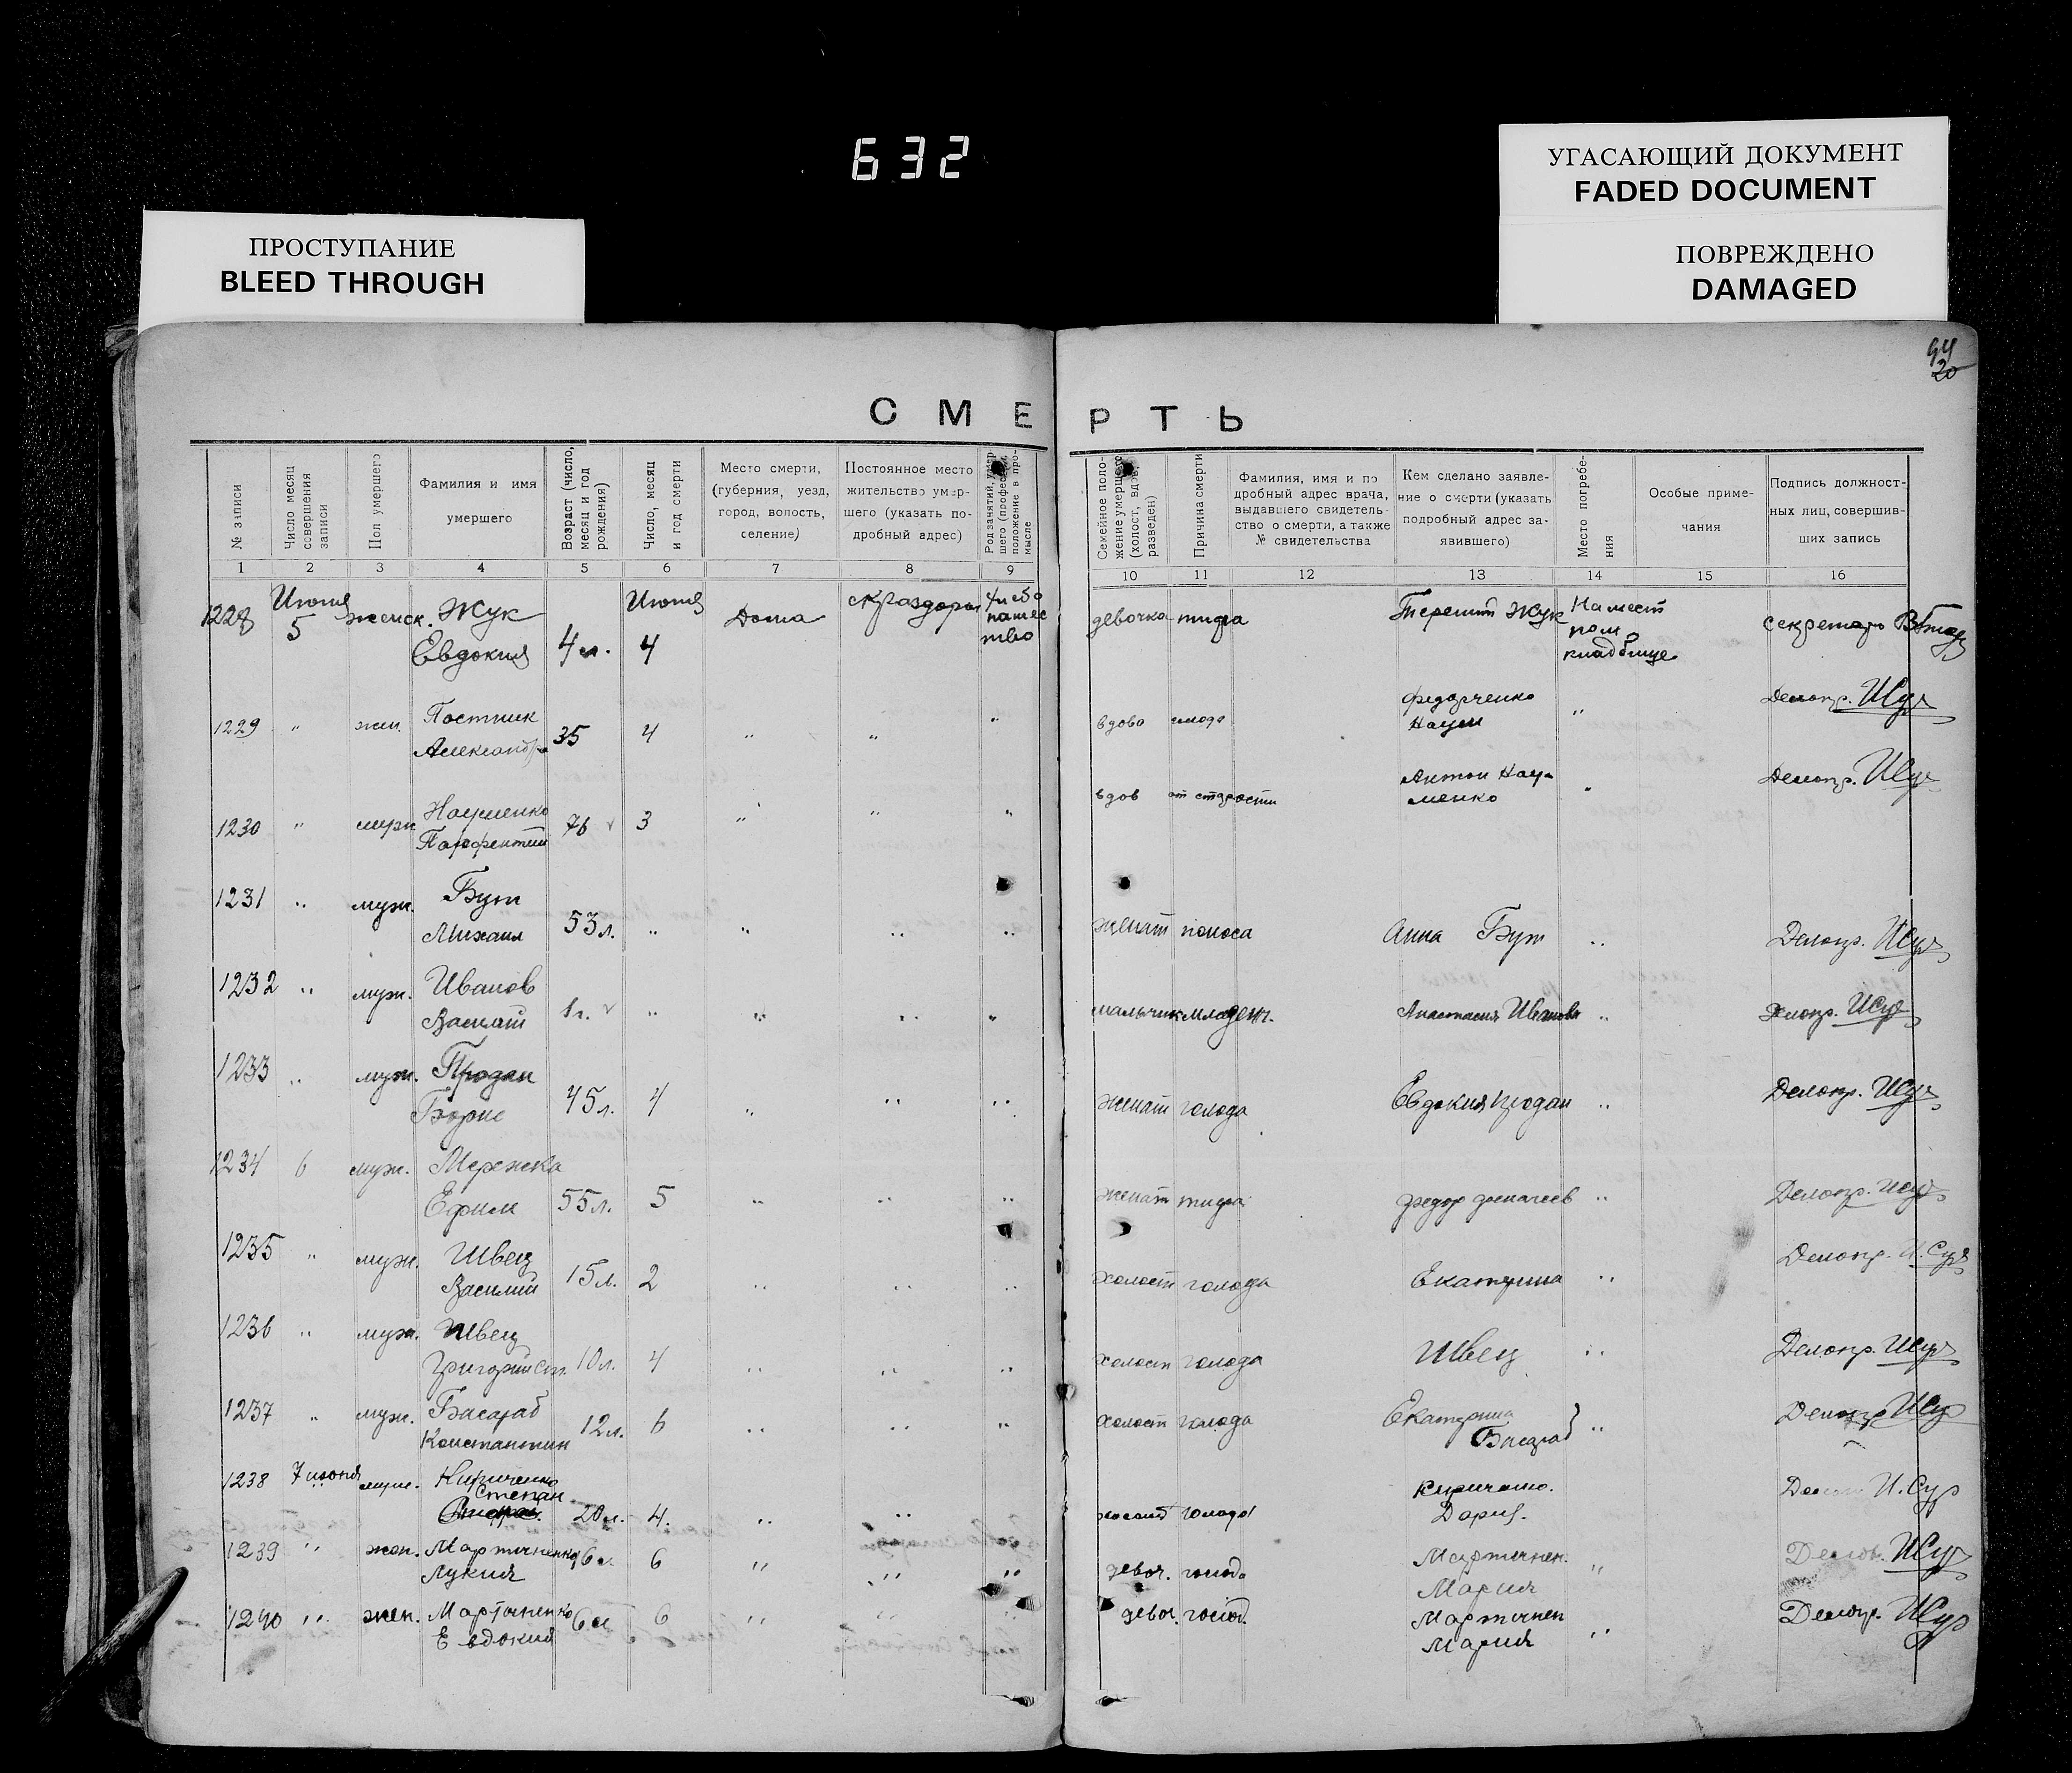 632
УГАСАЮЩИЙ ДОКУМЕНТ
FADED DOCUMENT
ПРОСТУПАНИЕ
BLEED THROUGH
ПОВРЕЖДЕНО
DAMAGED
94
20
СМЕРТЬ
№ записи
Число месяц совершения записи
Пол умершего
Фамилия и имя умершего
Возраст (число, месяц и год рождения)
Число, месяц и год смерти
Место смерти, (губерния, уезд, город, волость, селение)
Постоянное место жительство умершего (указать подробный адрес)
Род занятий, умершего (профессия, положение в промысле
Семейное положение умершего (холост, вдов, разведен)
Причина смерти
Фамилия, имя и подробный адрес врача, выдавшего свидетельство о смерти, а также № свидетельства
Кем сделано заявление о смерти (указать подробный адрес заявившего)
Место погребения
Особые примечания
Подпись должностных лиц, совершивших запись
1 2 3 4 5 6 7 8 9 10 11 12 13 14 15 16
1228 Июня 5 женск. Жук Евдокия 4 л. Июня 4 Дома девочка тифа Терентий Жук На мест кладбище секретарь
1229 " жен. Постник Александра 35 4 " " " вдова голода Федорченко Наум " Делопр. ИСур
1230 " муж Науменко Парфентий 76 3 " " " вдов от старости Антон Науменко " Делопр. ИСур
1231 " муж. Бут Михаил 53 л. " " " " женат поноса Анна Бут " Делопр. ИСур
1232 " муж. Иванов Василий 1 г. " " " " мальчик младен. Анастасия Иванова " Делопр. ИСур
1233 " муж. Продан Борис 45 л. 4 " " " женат голода Евдокия Продан " Делопр. ИСур
1234 6 муж. Мережка Ефим 55 л. 5 " " " женат тифа Федор " Делопр. ИСур
1235 " муж. Швец Василий 15 л. 2 " " " холост голода Екатерина " Делопр. И. Сур
1236 " муж. Швец Григорий Ст. 10 л. 4 " " " холост голода Швец " Делопр. ИСур
1237 " муж. Басараб Константин 12 л. 6 " " " холост голода Екатерина Басараб " Делопр. ИСур
1238 7 июня муж. Кириченко Степан 20 л. 4. " " холост голода Кириченко. Дария. И. Сур
1239 " жен. Мартиненко Лукия 6 л 6 " " " девоч. голода Мартинен. Мария " Делопр. ИСур
1240 " жен. Мартиненко Евдокия 6 л 6 " " " девоч. голод. Мартинен Мария " Делопр. ИСур